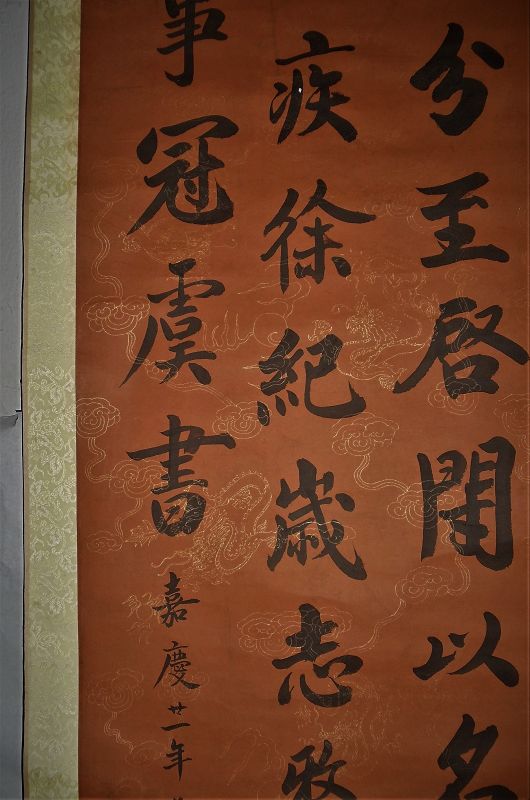 分至啓閉以名
疾徐紀歲志
事冠虞書
嘉慶廿一年